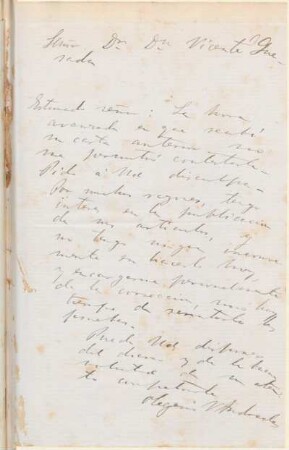 Señor Dr. Dn. Vicente G. Que-
sada
Estimado señor: La hora
avanzada en que recibí
su carta anterior no
me permitió contestarla.
Pido á Ud disculpa.
Por muchas razones, tengo
interés en la publicación
de mis artículos,
no tengo ningun inconve-
mente en hacerlo hoy,
y encargarme personalmente
de la correccion,
tiempo de remitirle las
pruebas.
Puede Ud disponer
del diario y de la buena
voluntad de su aten-
to compatriota
Olegario V Andrade